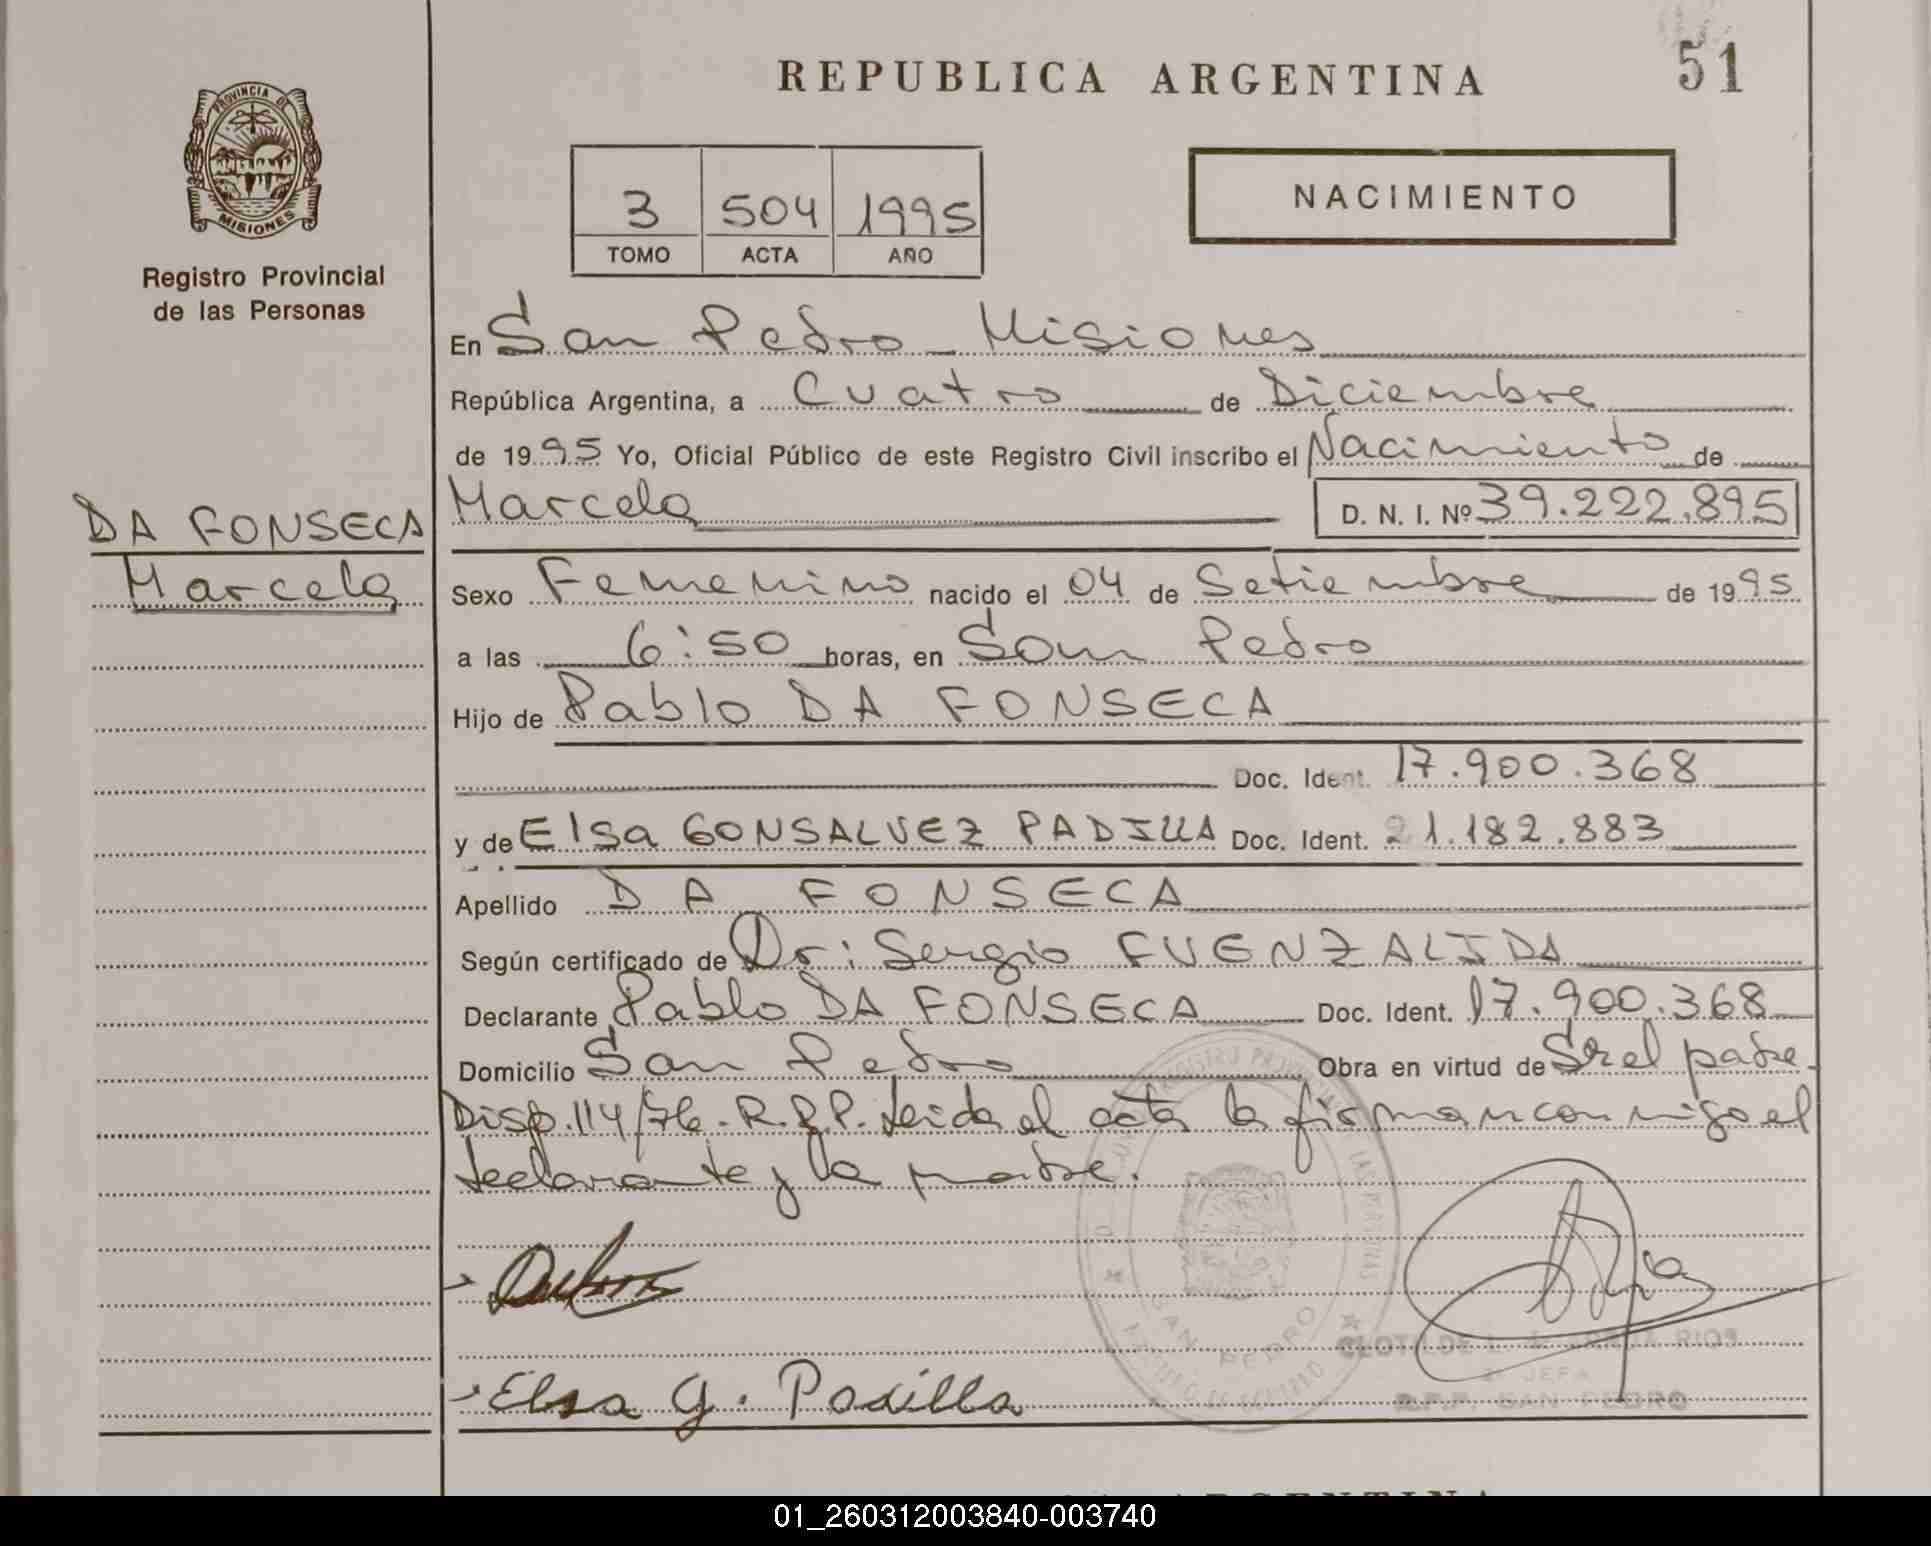 REPUBLICA ARGENTINA
51
PROVINCIA DE
MISIONES
Registro Provincial
de las Personas
3 504 1995
TOMO ACTA AÑO
NACIMIENTO
En San Pedro - Misiones
República Argentina, a Cuatro de Diciembre
de 1995 Yo, Oficial Público de este Registro Civil inscribo el Nacimiento de
DA FONSECA
Marcela
Marcela D. N. I. Nº 39.222.895
Sexo Femenino nacido el 04 de Setiembre de 1995
a las 6:50 horas, en San Pedro
Hijo de Pablo DA FONSECA
Doc. Ident. 17.900.368
y de Elsa GONSALVEZ PADILLA Doc. Ident. 21.182.883
Apellido DA FONSECA
Según certificado de Dr: Sergio FUENZALIDA
Declarante Pablo DA FONSECA Doc. Ident. 17.900.368
Domicilio San Pedro Obra en virtud de Sr el padre.
Disp. 114/76. R.P.P. Leida el acta la firman conmigo el
declarante y la madre.
Elsa G. Padilla
SAN PEDRO
JEFA
SAN PEDRO
01_260312003840-003740